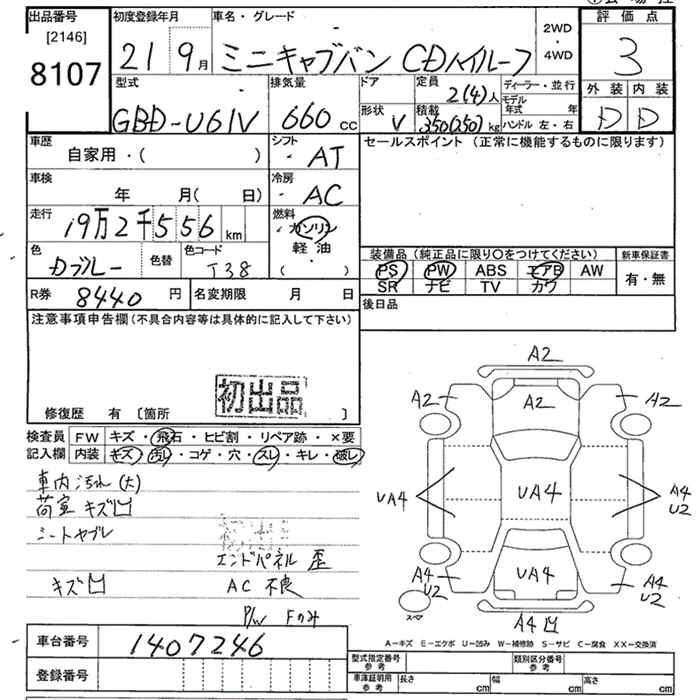 出品番号 初度登録年月 車名・グレード 評価点
[2146]
8107
21 9月 ミニキャブバン CDハイルーフ 2WD・4WD 3
型式 排気量 ドア 定員 ディーラー・並行 外装 内装
GBD-U61V 660cc 2(4)人 モデル年式 年 D D
形状 V 積載 350(250)kg ハンドル 左・右
車歴 シフト セールスポイント (正常に機能するものに限ります)
自家用・( ) AT
車検 冷房
年 月( 日) AC
走行 燃料
19万2千556km ガソリン
軽油
( )
色 色替 色コード 装備品(純正品に限り○をつけてください) 新車保証書
Dブルー T38 PS PW ABS エアB AW 有・無
SR ナビ TV カワ
R券 8440円 名変期限 月 日 後日品
注意事項申告欄(不具合内容等は具体的に記入して下さい)
初出品
修復歴 有 [箇所 ]
検査員 FW キズ・飛石・ヒビ割・リペア跡・×要
記入欄 内装 キズ・汚レ・コゲ・穴・スレ・キレ・破レ
車内汚れ(大)
荷室キズ凹
シートヤブレ
初出品
エンドパネル歪
キズ凹 AC不良
P/W Fのみ
A2
A2 A2 A2
UA4 UA4 A4
U2
A4 UA4 A4
U2 U2
スペア
A4凹
車台番号 1407246
A－キズ E－エクボ U－凹み W－補修跡 S－サビ C－腐食 XX－交換済
登録番号
型式指定番号 参考 類別区分番号 参考
車庫証明用 参考 長さ cm 幅 cm 高さ cm